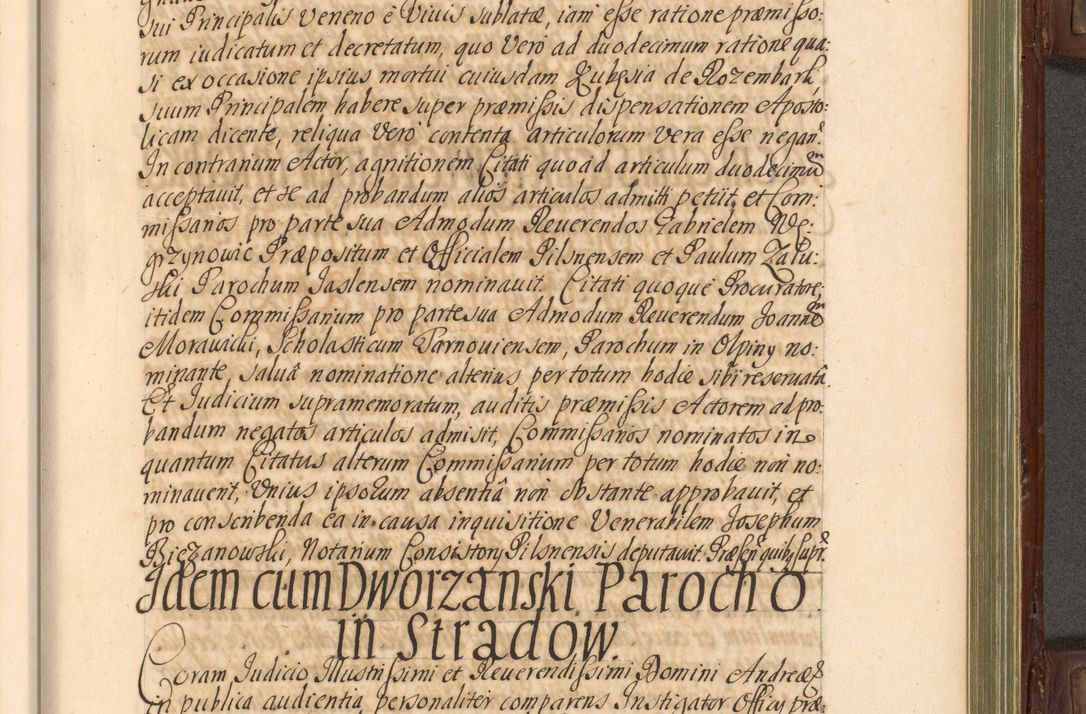 sui Principalis Veneno è Vivis sublatæ, iam esse ratione præmisso:
rum iudicatum et decretatum, quo Vero ad duodecimum ratione qua:
si ex occasione ipsius mortui cuiusdam de Rozembark,
suum Principalem habere super præmissis dispensationem Aposto:
licam dicente, reliqua Verò contenta articulorum Vera esse negan̄.
In contrarium Actor, agnitionem Citati quoad articulum duodecimũ
acceptauit, et se ad probandum alios articulos admitti petiit, et Com:
missarios pro parte sua Admodum Reuerendos Gabrielem We:
grzynowic Præpositum et Officialem Pilsnensem et Paulum Zału:
ski Parochum Jaslensem nominauit. Citati quoque Procuratore,
itidem Commissarium pro parte sua Admodum Reuerendum Joannẽ
Morawicki, Scholasticum Tarnouiensem, Parochum in Olpiny no:
minante, saluâ nominatione alterius per totum hodie sibi reseruatâ.
Et Judicium supramemoratum, auditis præmissis Actorem ad pro:
bandum negatos articulos admisit, Commissarios nominatos in
quantum Citatus alterum Commissarium per totum hodie non no:
minauerit, Vnius ipsorum absentiâ non obstante approbauit, et
pro conscribenda ea in causa inquisitione Venerabilem Josephum
Biezanowski, Notarium Consistory Pilsnensis deputauit. Præsen̄ quibȝ supr.
Idem cum Dworzanski Parocho
in Stradow.
Coram Judicio Illustrissimi et Reuerendissimi Domini Andreæ &
in publica audientia personaliter comparens Instigator Officy præ: